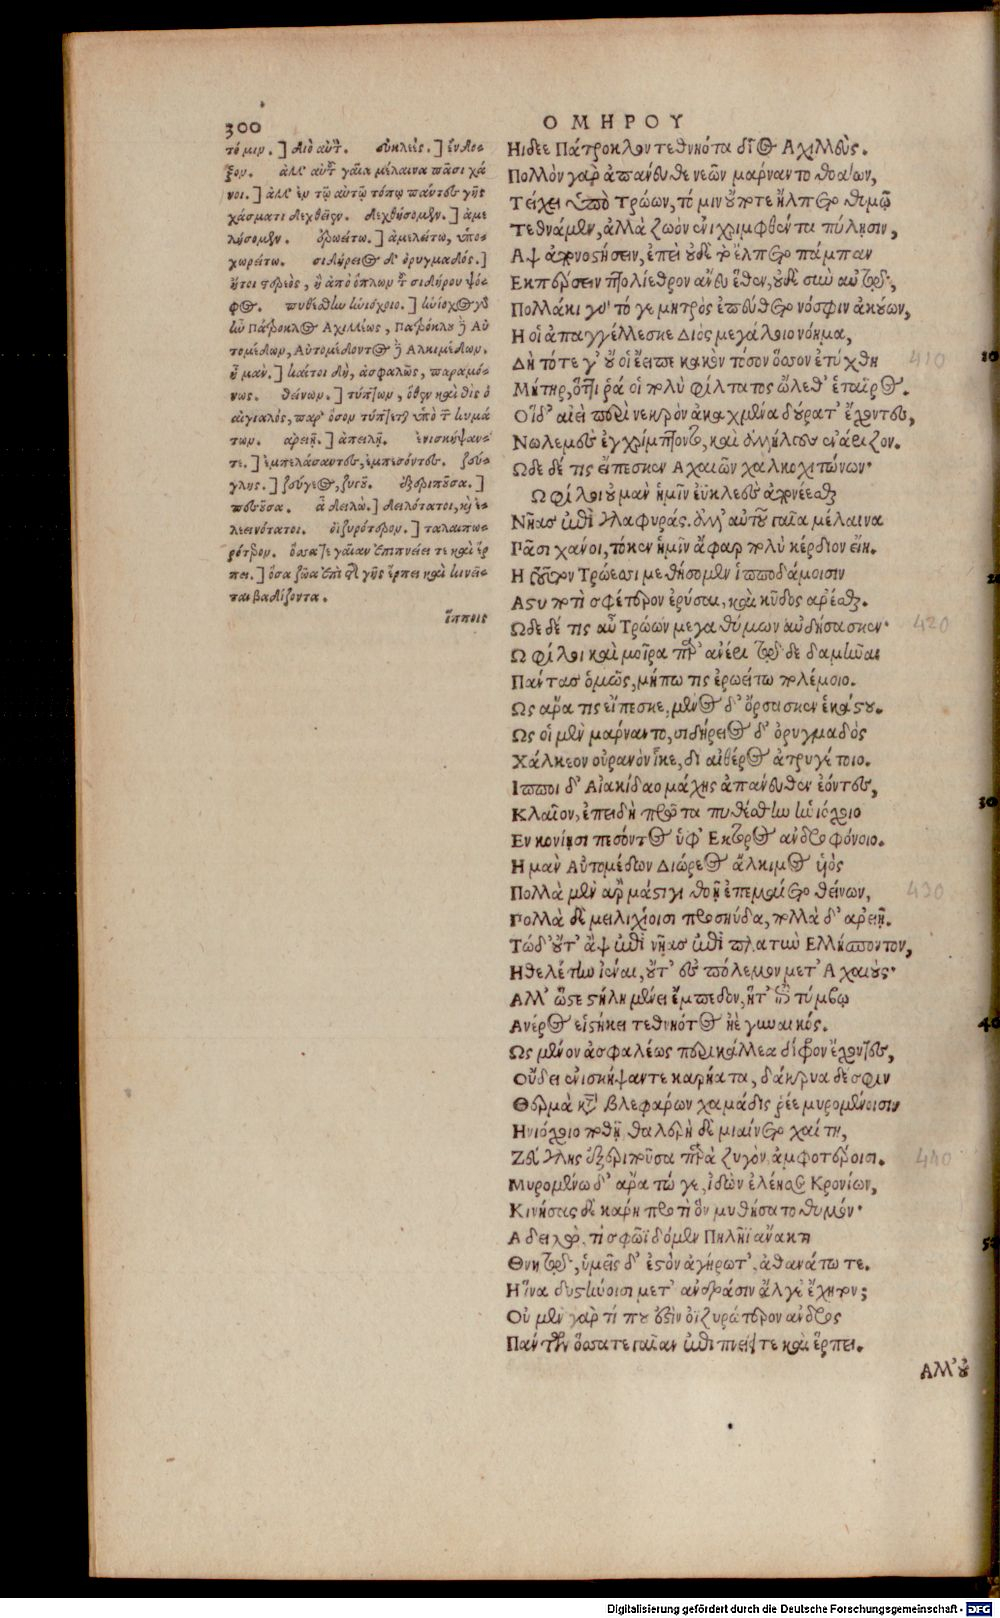 300
ΟΜΗΡΟΥ
τό μιν. ] διὸ αὐτ. εὐκλεὲς. ] ἔνδο-
ξον. ἀλλ' αὐτ γαῖα μέλαινα πᾶσι χά
νοι. ] ἀλλ' ἐν τῷ αὐτῷ τόπῳ πάντες γῆς
χάσματι δεχθεῖεν. δεχθήσομεν. ] ἀμε
λήσομεν. ἐρωείτω. ] ἀμελείτω, ὑπο-
χωρείτω. σιδήρειος δ' ὀρυγμαδός. ]
ἤτοι στερεὸς, ἢ ἀπὸ ὅπλων τ σιδήρου ψό-
φος. πυθέσθην ἡνιόχοιο. ] ἡνίοχος γδ
ἦν Πάτροκλος Ἀχιλλέως, Πατρόκλου ἢ Αὐ
τομέδων, Αὐτομέδοντος ἢ Ἀλκιμέδων.
ἦ μαν. ] καίτοι δὴ, ἀσφαλῶς, παραμό-
νως. θείνων. ] τύπτων, ὅθεν καὶ θὶς ὁ
αἰγιαλός, παρ' ὅσον τύπτεται ὑπὸ τ κυμά
των. ἀρειῇ. ] ἀπειλῇ. ἐνισκήψαν-
τε. ] ἐμπελάσαντες, ἐμπεσόντες. ζεύ-
γλης. ] ζεύγεος, ζυγοῦ. ἐξεριποῦσα. ]
πεσοῦσα. ἆ δειλὼ. ] δειλότατοι, κὴ ἐ-
λεεινότατοι. ὀϊζυρότερον. ] ταλαιπω-
ρότερον. ὅσσα τε γαῖαν ἐπιπνείει τε καὶ ἕρ
πει. ] ὅσα ζῶα ἐπὶ τ γῆς ἕρπει καὶ κινεῖ-
ται βαδίζοντα.
ἵπποις
Ηιδεε Πάτροκλον τεθνηότα δῖος Αχιλλεύς.
Πολλὸν γαρ ἀπανευθε νεῶν μαρναντο θοάων,
Τείχει ὑπὸ Τρώων, τό μιν οὔποτε ἤλπετο θυμῷ
Τεθνάμεν, ἀλλὰ ζωὸν ἐνιχριμφθέντα πύλησιν,
Αψ ἀπονοστήσειν, ἐπεὶ ουδὲ τὸ ἔλπετο πάμπαν
Εκπέρσειν πτολίεθρον ἄνευ ἕθεν, ουδὲ σὺν αὐτῷ,
Πολλάκι γὰρ τό γε μητρὸς ἐπεύθετο νόσφιν ἀκούων,
Η οἱ ἀπαγγέλλεσκε Διὸς μεγάλοιο νόημα,
Δὴ τότε γ' οὔ οἱ ἔειπε κακὸν τόσον ὅσσον ἐτύχθη
Μήτηρ, ὅττι ῥά οἱ πολὺ φίλτατος ὤλεθ' ἑταῖρος.
Οἱ δ' αἰεὶ περὶ νεκρὸν ἀκαχμένα δούρατ' ἔχοντες,
Νωλεμὲς ἐγχρίμπτοντο, καὶ ἀλλήλους ἐνάριζον.
Ωδε δέ τις εἴπεσκεν Αχαιῶν χαλκοχιτώνων·
Ω φίλοι οὐ μαν ἡμῖν ἐϋκλεὲς ἀπονέεσθαι
Νῆας ἐπὶ γλαφυράς. ἀλλ' αὐτοῦ γαῖα μέλαινα
Πᾶσι χάνοι, τόκεν ἡμῖν ἄφαρ πολὺ κέρδιον εἴη.
Η τοῦτον Τρώεσσι μεθήσομεν ἱπποδάμοισιν
Αστυ ποτὶ σφέτερον ἐρύσαι, καὶ κῦδος αρέσθαι.
Ωδε δέ τις αὖ Τρώων μεγαθύμων αὐδήσασκεν·
Ω φίλοι καὶ μοῖρα παρ' ἀνέρι τῷδε δαμῆναι
Πάντας ὁμῶς, μήπω τις ἐρωείτω πολέμοιο.
Ως αρα τις εἴπεσκε, μένος δ' ὄρσασκεν ἑκάστου.
Ως οἱ μὲν μαρναντο, σιδήρειος δ' ὀρυγμαδὸς
Χάλκεον οὐρανὸν ἷκε, δι αἰθέρος ἀτρυγέτοιο.
Ιπποι δ' Αἰακίδαο μάχης ἀπάνευθεν ἐόντες,
Κλαῖον, ἐπειδὴ πρῶτα πυθέσθην ἡνιόχοιο
Εν κονίῃσι πεσόντος ὑφ' Εκτορος ανδροφόνοιο.
Η μαν Αὐτομέδων Διώρεος ἄλκιμος υἱὸς
Πολλὰ μὲν αρ μάστιγι θοῇ ἐπεμαίετο θείνων,
Πολλὰ δὲ μειλιχίοισι προσηύδα, πολλὰ δ' αρειῇ.
Τὼ δ' οὔτ' ἂψ ἐπὶ νῆας ἐπὶ πλατὺν Ελλήσποντον,
Ηθελέτην ἰέναι, οὔτ' ἐς πόλεμον μετ' Αχαιούς·
Αλλ' ὥστε στήλη μένει ἔμπεδον, ἥτ' ἐπὶ τύμβῳ
Ανέρος εἱστήκει τεθνηότος ἠὲ γυναικός.
Ως μένον ἀσφαλέως περικάλλεα δίφρον ἔχοντες,
Οὔδει ἐνισκήψαντε καρήατα, δάκρυα δέ σφιν
Θερμὰ κατὰ βλεφάρων χαμάδις ῥέε μυρομένοισιν
Ηνιόχοιο ποθῇ, θαλερὴ δὲ μιαίνετο χαίτη,
Ζεύγλης ἐξεριποῦσα παρὰ ζυγὸν ἀμφοτέροισι.
Μυρομένω δ' αρα τώ γε, ἰδὼν ἐλέησε Κρονίων,
Κινήσας δὲ κάρη προτὶ ὃν μυθήσατο θυμόν·
Α δειλὼ, τί σφῶϊ δόμεν Πηλῆϊ ἄνακτι
Θνητῷ, ὑμεῖς δ' ἐστὸν ἀγήρωτ' ἀθανάτω τε.
Η ἵνα δυστήνοισι μετ' ανδράσιν ἄλγε' ἔχητον;
Οὐ μὲν γάρ τί που ἐστὶν ὀϊζυρώτερον ανδρὸς
Πάντων ὅσσα τε γαῖαν ἐπὶ πνείει τε καὶ ἕρπει.
Αλλ' οὐ
410
420
430
440
Digitalisierung gefördert durch die Deutsche Forschungsgemeinschaft - DFG